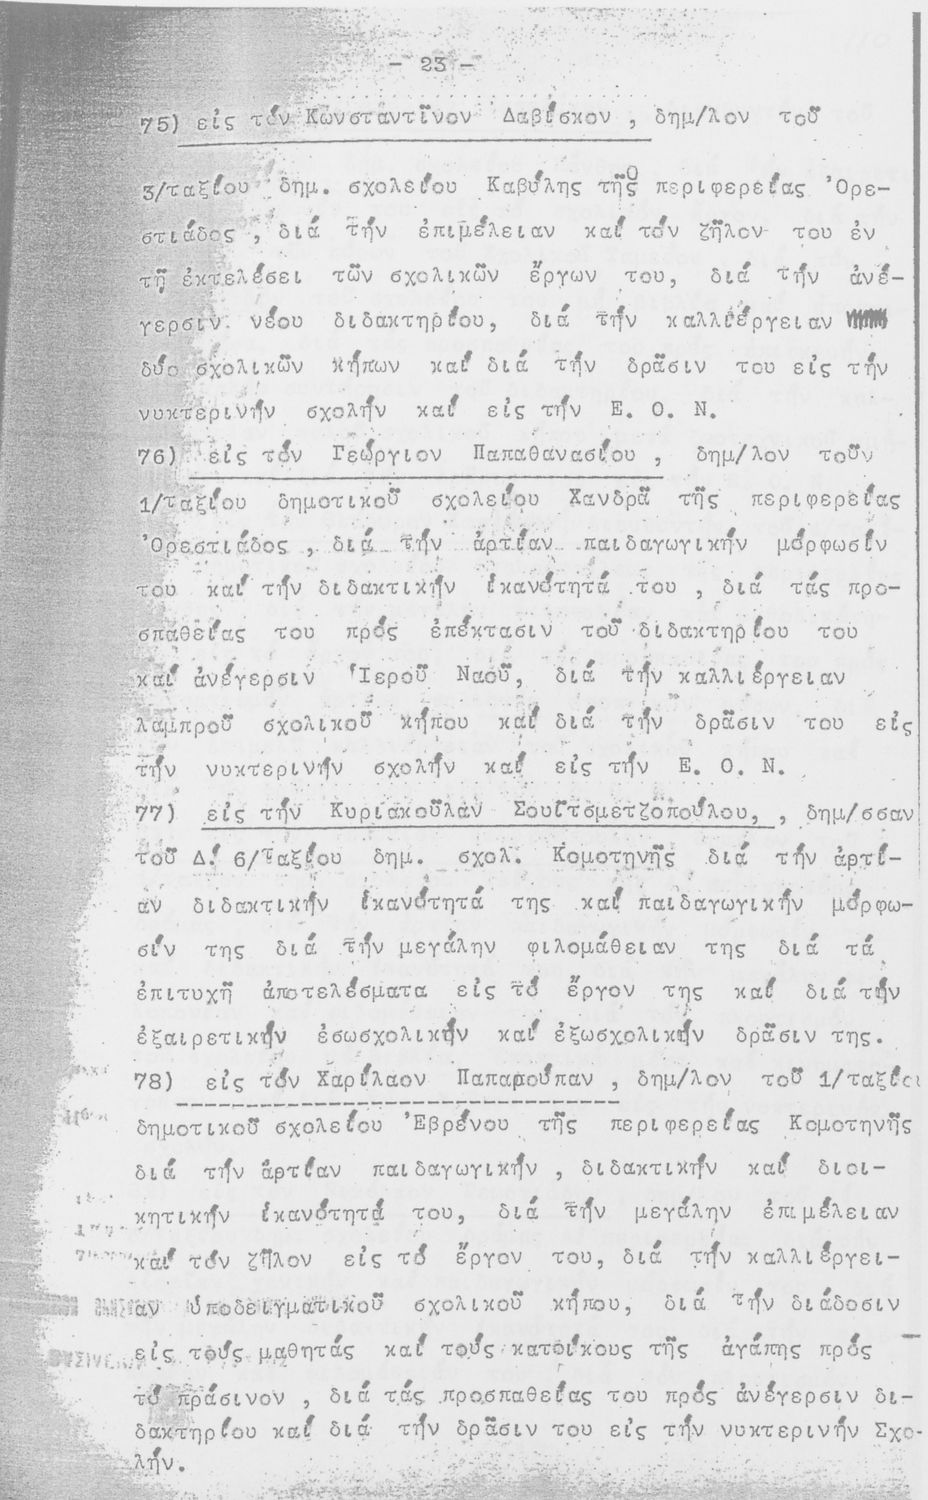 - 23 -
75) εἰς τόν Κωνσταντῖνον Δαβίσκον , δημ/λον τοῦ
3/ταξίου δημ. σχολείου Καβύλης τῆς περιφερείας Ὀρε-
στιάδος , διά τήν ἐπιμέλειαν καί τόν ζῆλον του ἐν
τῇ ἐκτελέσει τῶν σχολικῶν ἔργων του, διά τήν ἀνέ-
γερσιν νέου διδακτηρίου, διά τήν καλλιέργειαν
δύο σχολικῶν κήπων καί διά τήν δρᾶσιν του εἰς τήν
νυκτερινήν σχολήν καί εἰς τήν Ε. Ο. Ν.
76) εἰς τόν Γεώργιον Παπαθανασίου , δημ/λον τοῦν
1/ταξίου δημοτικοῦ σχολείου Χανδρᾶ τῆς περιφερείας
Ὀρεστιάδος , διά τήν ἀρτίαν παιδαγωγικήν μόρφωσίν
του καί τήν διδακτικήν ἱκανότητά του , διά τάς προ-
σπαθείας του πρός ἐπέκτασιν τοῦ διδακτηρίου του
καί ἀνέγερσιν Ἱεροῦ Ναοῦ, διά τήν καλλιέργειαν
λαμπροῦ σχολικοῦ κήπου καί διά τήν δρᾶσιν του εἰς
τήν νυκτερινήν σχολήν καί εἰς τήν Ε. Ο. Ν.
77) εἰς τήν Κυριακοῦλαν Σουϊτσμετζοπούλου, , δημ/σσαν
τοῦ Δ! 6/Ταξίου δημ. σχολ. Κομοτηνῆς διά τήν ἀρτί-
αν διδακτικήν ἱκανότητά της καί παιδαγωγικήν μόρφω-
σίν της διά τήν μεγάλην φιλομάθειαν της διά τά
ἐπιτυχῆ ἀποτελέσματα εἰς τό ἔργον της καί διά τήν
ἐξαιρετικήν ἐσωσχολικήν καί ἐξωσχολικήν δρᾶσιν της.
78) εἰς τόν Χαρίλαον Παπαρούπαν , δημ/λον τοῦ 1/ταξίου
δημοτικοῦ σχολείου Ἐβρένου τῆς περιφερείας Κομοτηνῆς
διά τήν ἀρτίαν παιδαγωγικήν , διδακτικήν καί διοι-
κητικήν ἱκανότητά του, διά τήν μεγάλην ἐπιμέλειαν
καί τόν ζῆλον εἰς τό ἔργον του, διά τήν καλλιέργει-
αν ὑποδειγματικοῦ σχολικοῦ κήπου, διά τήν διάδοσιν
εἰς τούς μαθητάς καί τούς κατοίκους τῆς ἀγάπης πρός
τό πράσινον , διά τάς προσπαθείας του πρός ἀνέγερσιν δι-
δακτηρίου καί διά τήν δρᾶσιν του εἰς τήν νυκτερινήν Σχο-
λήν.